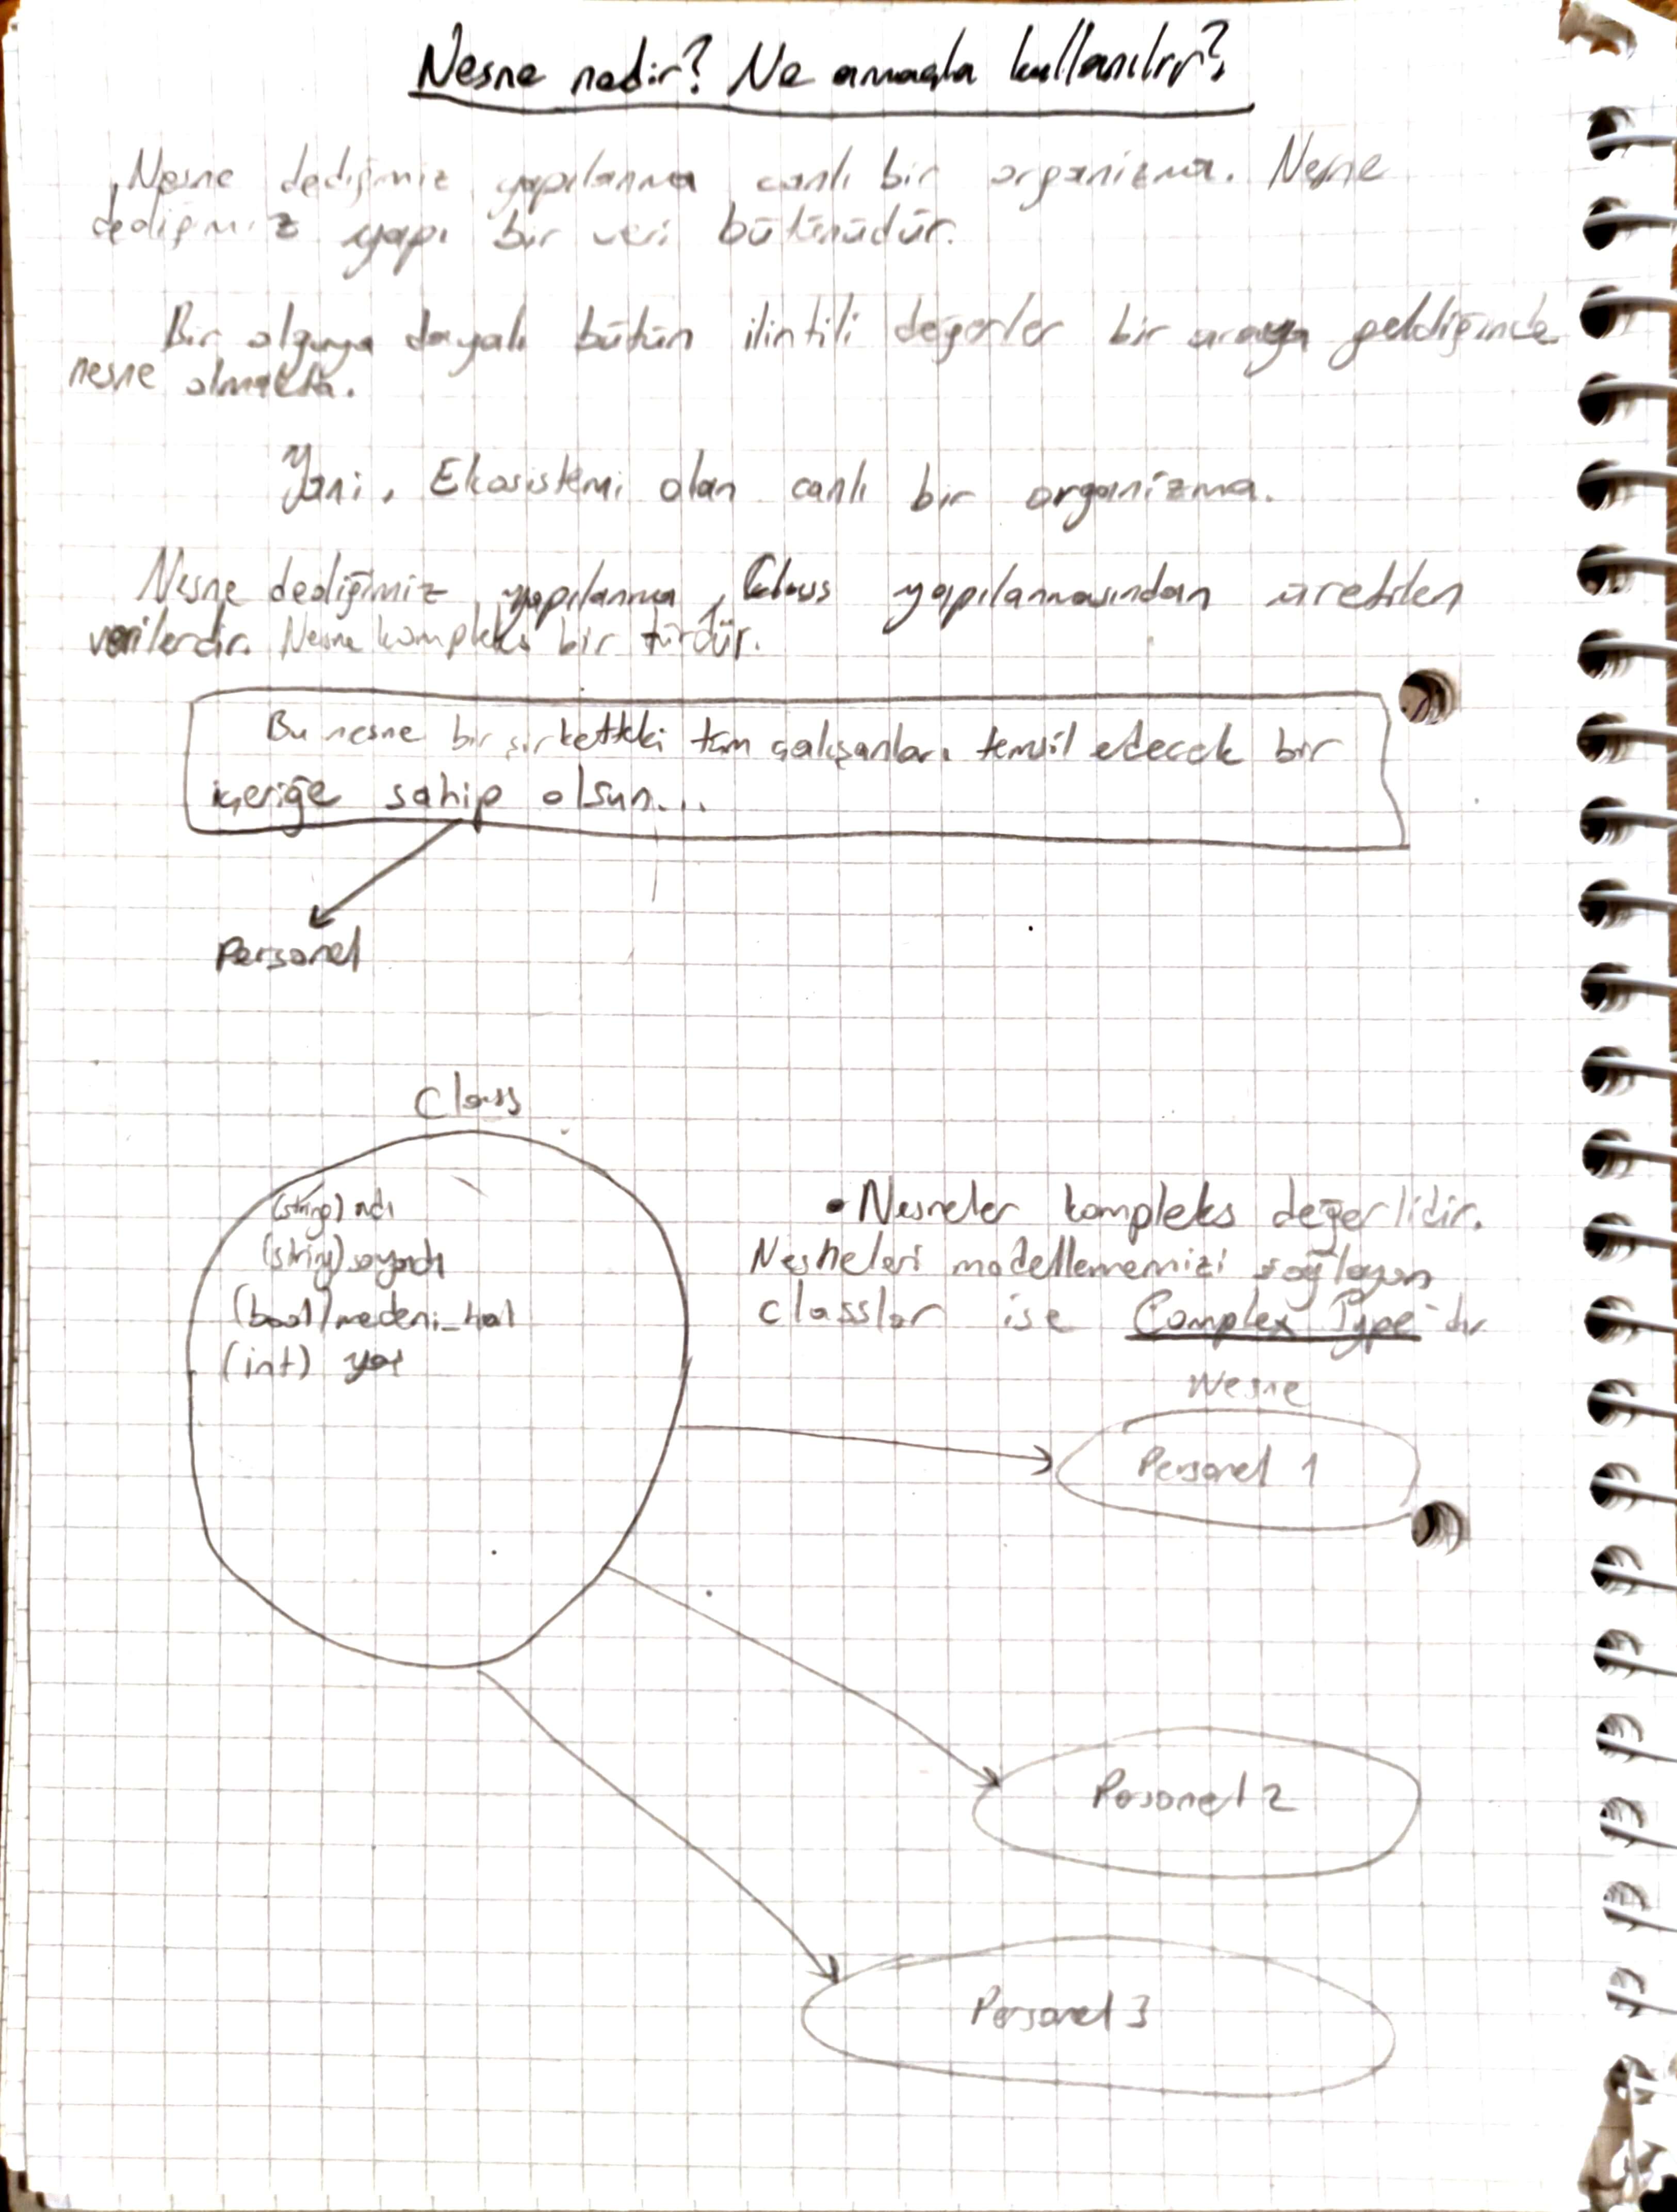 Nesne nedir? Ne amaçla kullanılır?
Nesne dediğimiz yapılanma canlı bir organizma. Nesne
dediğimiz yapı bir veri bütünüdür.
Bir olguya dayalı bütün ilintili değerler bir araya geldiğinde
nesne olmakta.
Yani, Ekosistemi olan canlı bir organizma.
Nesne dediğimiz yapılanma, Class yapılanmasından üretilen
verilerdir. Nesne kompleks bir türdür.
Bu nesne bir şirketteki tüm çalışanları temsil edecek bir
içeriğe sahip olsun...
Personel
Class
(string) adı
(string) soyadı
(bool) medeni_hal
(int) yaş
• Nesneler kompleks değerlidir.
Nesneleri modellememizi sağlayan
classlar ise Complex Type'dır
Nesne
Personel 1
Personel 2
Personel 3